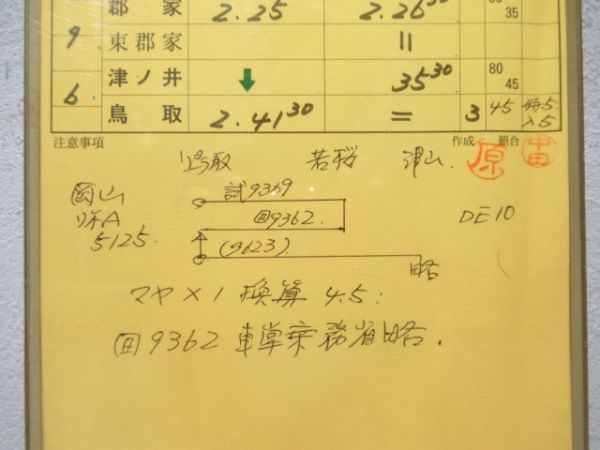 郡家 2.25 2.26 30 35
9 東郡家 ＝
6 津ノ井 ↓ 35 30 80 45
鳥取 2.41 30 ＝ 3 45 時5 入5
注意事項 作成 照合
鳥取 若桜 津山. 原
岡山 試9369
リネA 回9362. DE10
5125. (9623).
略
マヤ×1 換算 4.5.
回9362 車掌乗務省略.